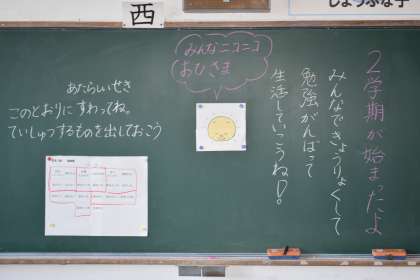 西
じょうぶな子
みんなニコニコ
おひさま
２学期が始まったよ
みんなできょうりょくして
勉強がんばって
生活していこうね！
あたらしいせき
このとおりにすわってね。
ていしゅつするものを出しておこう